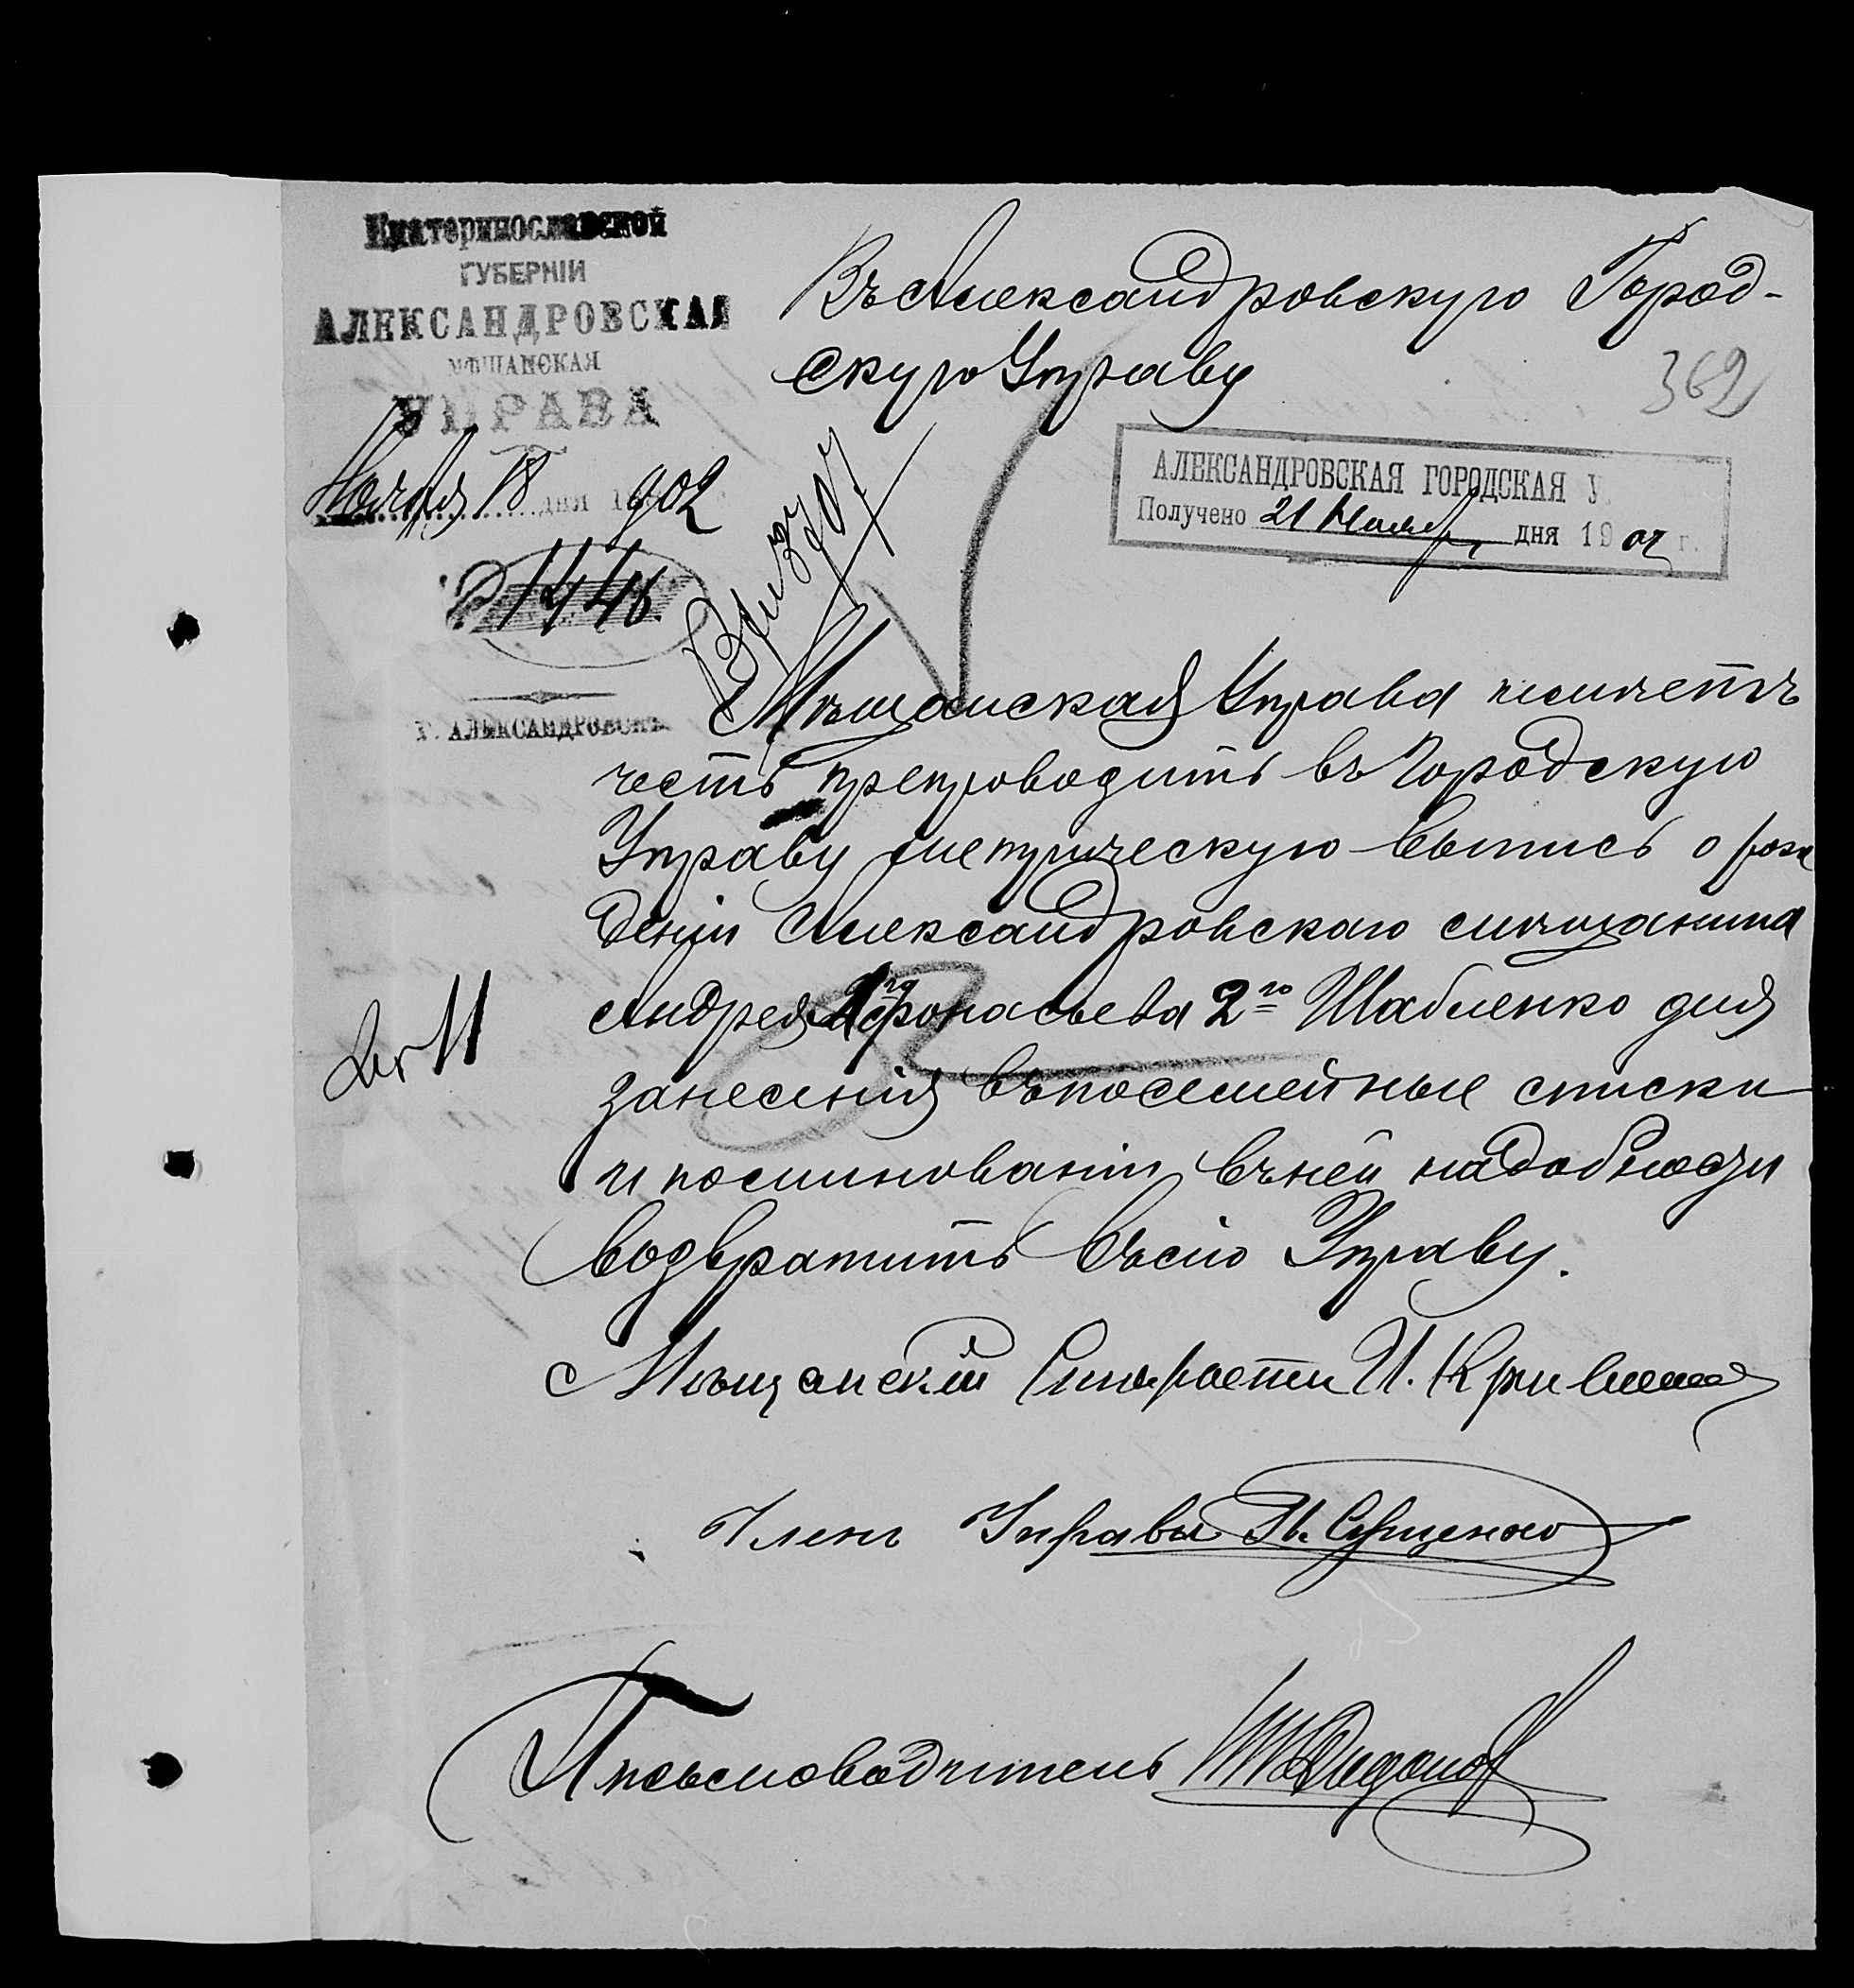 Екатеринославской
ГУБЕРНІИ
АЛЕКСАНДРОВСКАЯ
МѢЩАНСКАЯ
УПРАВА
Ноября 18 дня 1902
№ 1446
Г. АЛЕКСАНДРОВСКЪ
Въ Александровскую Город-
скую Управу
362
АЛЕКСАНДРОВСКАЯ ГОРОДСКАЯ У
Получено 21 Ноября дня 1902 г.
Мѣщанская Управа имѣетъ
честь препроводить въ Городскую
Управу метрическую выпись о рож
деніи Александровскаго мѣщанина
Андрея Афонасьева 2го Шабленко для
занесенія въ посемейные списки
и по минованіи въ ней надобности
возвратить въ сію Управу.
Мѣщанскій Староста И.
Членъ Управы
Письмоводитель